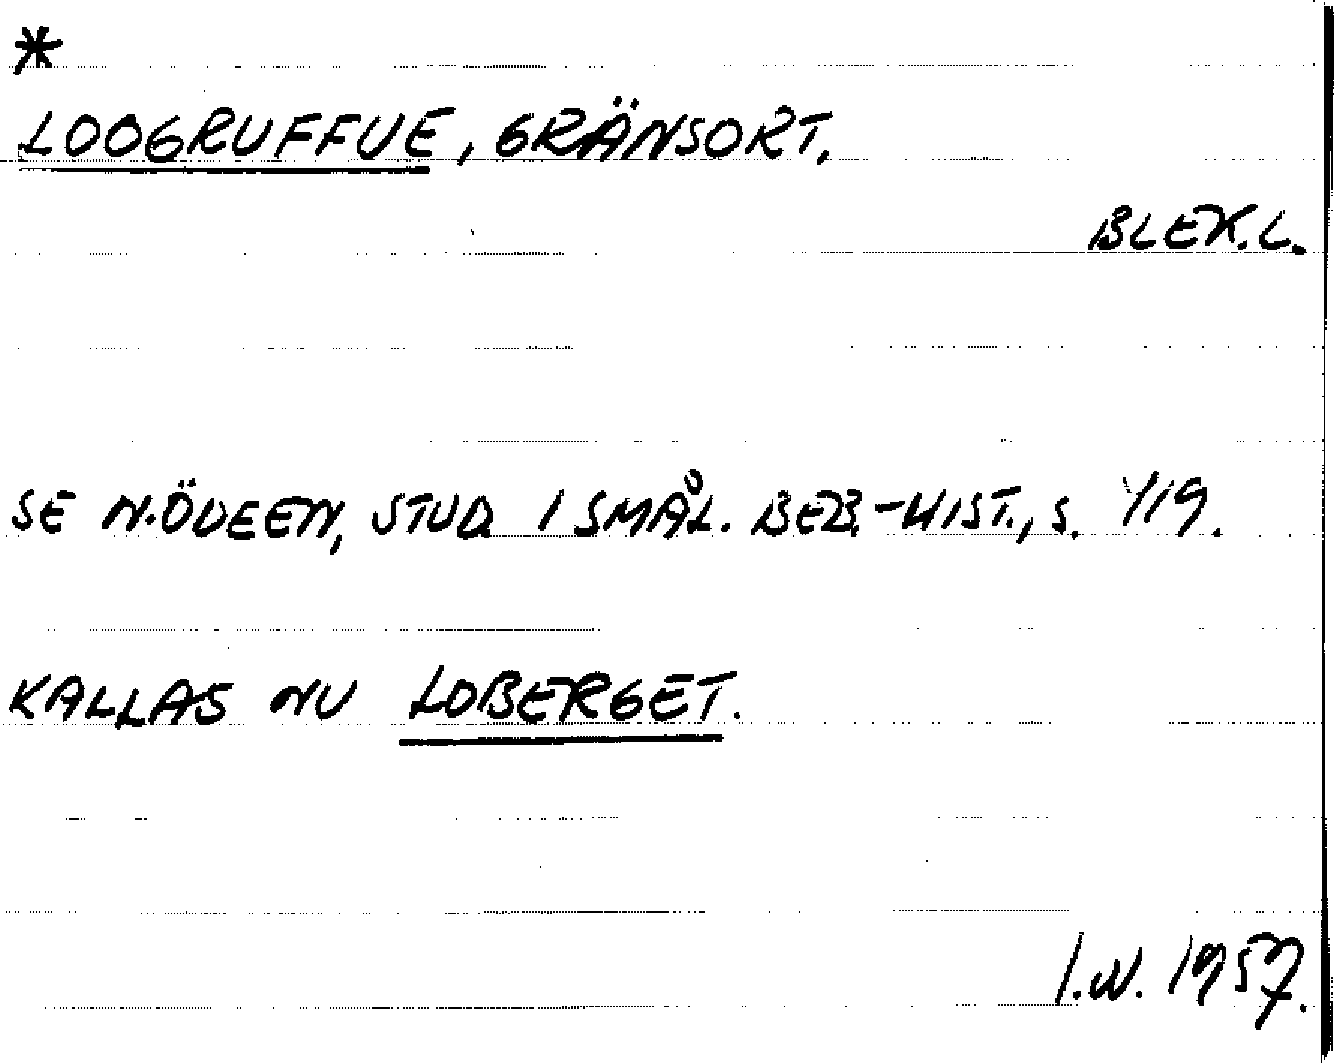 *
LOOGRUFFUE, GRÄNSORT,
BLEK.L.
SE N.ÖDEEN, STUD. I SMÅL. BEB.-HIST., S. 119.
KALLAS NU LOBERGET.
I.N. 1957.